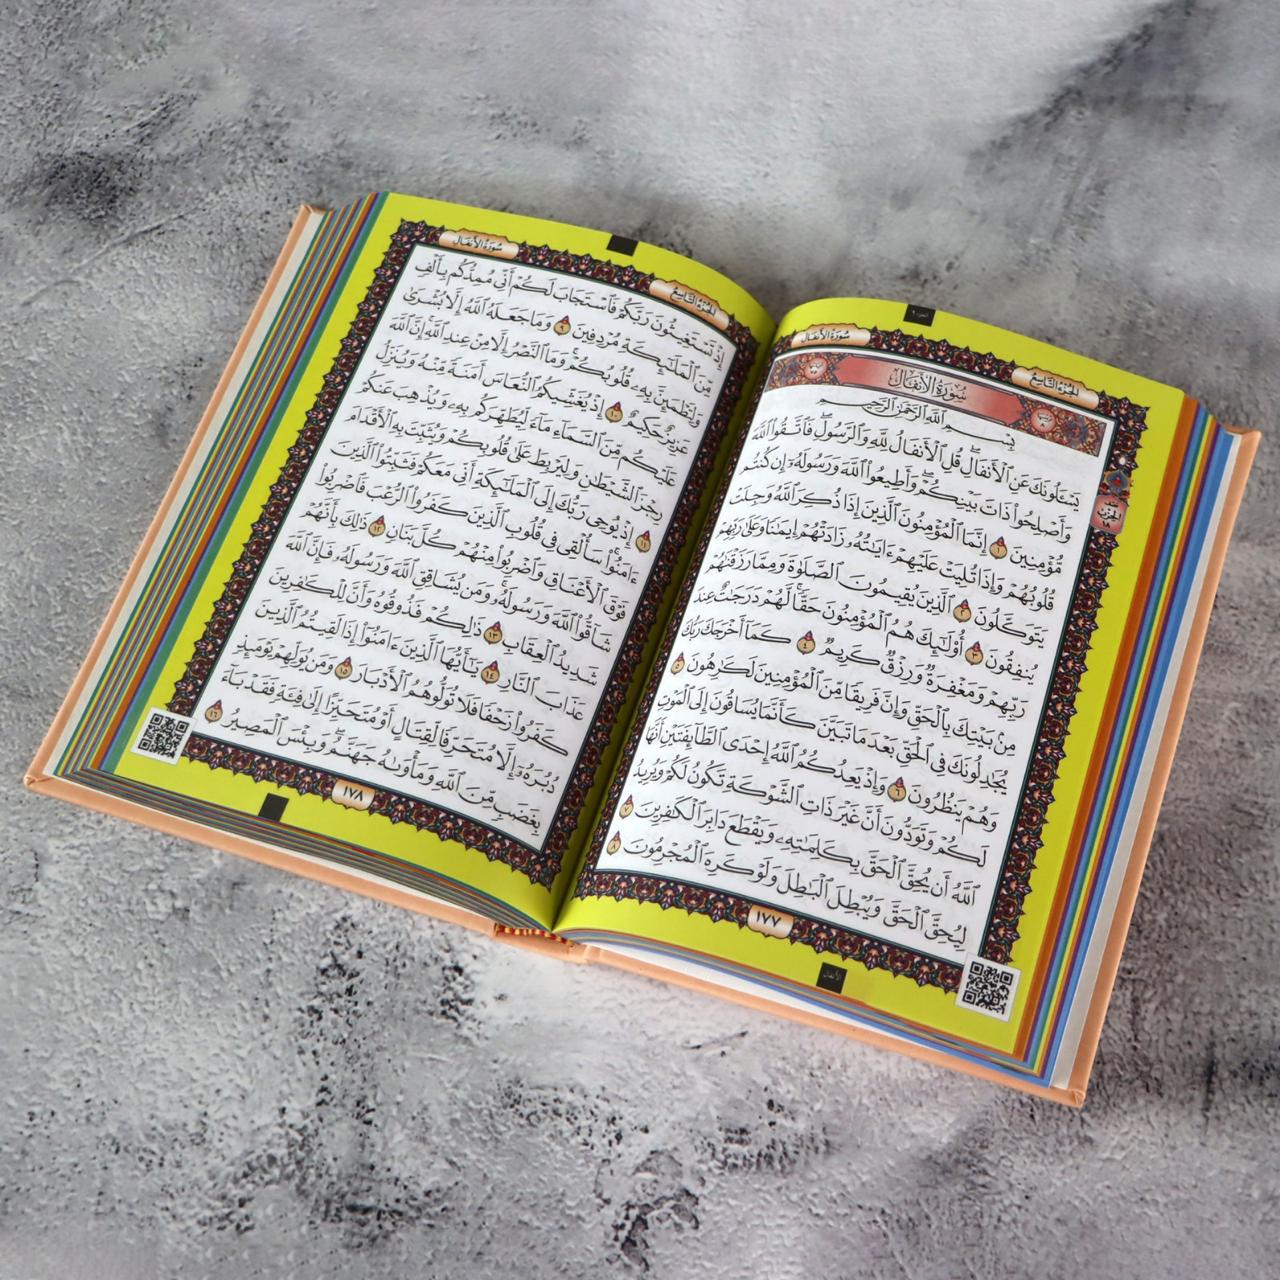 سُورَةُ الأَنفَالِ
الجُزءُ التَّاسِعُ
سُورَةُ الأَنفَالِ
بِسْمِ ٱللَّهِ ٱلرَّحْمَٰنِ ٱلرَّحِيمِ
يَسْـَٔلُونَكَ عَنِ ٱلْأَنفَالِۖ قُلِ ٱلْأَنفَالُ لِلَّهِ وَٱلرَّسُولِۖ فَٱتَّقُوا۟ ٱللَّهَ
وَأَصْلِحُوا۟ ذَاتَ بَيْنِكُمْۖ وَأَطِيعُوا۟ ٱللَّهَ وَرَسُولَهُۥٓ إِن كُنتُم
مُّؤْمِنِينَ ١ إِنَّمَا ٱلْمُؤْمِنُونَ ٱلَّذِينَ إِذَا ذُكِرَ ٱللَّهُ وَجِلَتْ
قُلُوبُهُمْ وَإِذَا تُلِيَتْ عَلَيْهِمْ ءَايَٰتُهُۥ زَادَتْهُمْ إِيمَٰنًا وَعَلَىٰ رَبِّهِمْ
يَتَوَكَّلُونَ ٢ ٱلَّذِينَ يُقِيمُونَ ٱلصَّلَوٰةَ وَمِمَّا رَزَقْنَٰهُمْ
يُنفِقُونَ ٣ أُو۟لَٰٓئِكَ هُمُ ٱلْمُؤْمِنُونَ حَقًّاۚ لَّهُمْ دَرَجَٰتٌ عِندَ
رَبِّهِمْ وَمَغْفِرَةٌ وَرِزْقٌ كَرِيمٌ ٤ كَمَآ أَخْرَجَكَ رَبُّكَ
مِنۢ بَيْتِكَ بِٱلْحَقِّ وَإِنَّ فَرِيقًا مِّنَ ٱلْمُؤْمِنِينَ لَكَٰرِهُونَ ٥
يُجَٰدِلُونَكَ فِى ٱلْحَقِّ بَعْدَ مَا تَبَيَّنَ كَأَنَّمَا يُسَاقُونَ إِلَى ٱلْمَوْتِ
وَهُمْ يَنظُرُونَ ٦ وَإِذْ يَعِدُكُمُ ٱللَّهُ إِحْدَى ٱلطَّآئِفَتَيْنِ أَنَّهَا
لَكُمْ وَتَوَدُّونَ أَنَّ غَيْرَ ذَاتِ ٱلشَّوْكَةِ تَكُونُ لَكُمْ وَيُرِيدُ
ٱللَّهُ أَن يُحِقَّ ٱلْحَقَّ بِكَلِمَٰتِهِۦ وَيَقْطَعَ دَابِرَ ٱلْكَٰفِرِينَ ٧
لِيُحِقَّ ٱلْحَقَّ وَيُبْطِلَ ٱلْبَٰطِلَ وَلَوْ كَرِهَ ٱلْمُجْرِمُونَ ٨
١٧٧
سُورَةُ الأَنفَالِ
الجُزءُ التَّاسِعُ
إِذْ تَسْتَغِيثُونَ رَبَّكُمْ فَٱسْتَجَابَ لَكُمْ أَنِّى مُمِدُّكُم بِأَلْفٍ
مِّنَ ٱلْمَلَٰٓئِكَةِ مُرْدِفِينَ ٩ وَمَا جَعَلَهُ ٱللَّهُ إِلَّا بُشْرَىٰ
وَلِتَطْمَئِنَّ بِهِۦ قُلُوبُكُمْۚ وَمَا ٱلنَّصْرُ إِلَّا مِنْ عِندِ ٱللَّهِۚ إِنَّ ٱللَّهَ
عَزِيزٌ حَكِيمٌ ١٠ إِذْ يُغَشِّيكُمُ ٱلنُّعَاسَ أَمَنَةً مِّنْهُ وَيُنَزِّلُ
عَلَيْكُم مِّنَ ٱلسَّمَآءِ مَآءً لِّيُطَهِّرَكُم بِهِۦ وَيُذْهِبَ عَنكُمْ
رِجْزَ ٱلشَّيْطَٰنِ وَلِيَرْبِطَ عَلَىٰ قُلُوبِكُمْ وَيُثَبِّتَ بِهِ ٱلْأَقْدَامَ
١١ إِذْ يُوحِى رَبُّكَ إِلَى ٱلْمَلَٰٓئِكَةِ أَنِّى مَعَكُمْ فَثَبِّتُوا۟ ٱلَّذِينَ
ءَامَنُوا۟ۚ سَأُلْقِى فِى قُلُوبِ ٱلَّذِينَ كَفَرُوا۟ ٱلرُّعْبَ فَٱضْرِبُوا۟
فَوْقَ ٱلْأَعْنَاقِ وَٱضْرِبُوا۟ مِنْهُمْ كُلَّ بَنَانٍ ١٢ ذَٰلِكَ بِأَنَّهُمْ
شَآقُّوا۟ ٱللَّهَ وَرَسُولَهُۥۚ وَمَن يُشَاقِقِ ٱللَّهَ وَرَسُولَهُۥ فَإِنَّ ٱللَّهَ
شَدِيدُ ٱلْعِقَابِ ١٣ ذَٰلِكُمْ فَذُوقُوهُ وَأَنَّ لِلْكَٰفِرِينَ
عَذَابَ ٱلنَّارِ ١٤ يَٰٓأَيُّهَا ٱلَّذِينَ ءَامَنُوٓا۟ إِذَا لَقِيتُمُ ٱلَّذِينَ
كَفَرُوا۟ زَحْفًا فَلَا تُوَلُّوهُمُ ٱلْأَدْبَارَ ١٥ وَمَن يُوَلِّهِمْ يَوْمَئِذٍ
دُبُرَهُۥٓ إِلَّا مُتَحَرِّفًا لِّقِتَالٍ أَوْ مُتَحَيِّزًا إِلَىٰ فِئَةٍ فَقَدْ بَآءَ
بِغَضَبٍ مِّنَ ٱللَّهِ وَمَأْوَىٰهُ جَهَنَّمُۖ وَبِئْسَ ٱلْمَصِيرُ ١٦
١٧٨